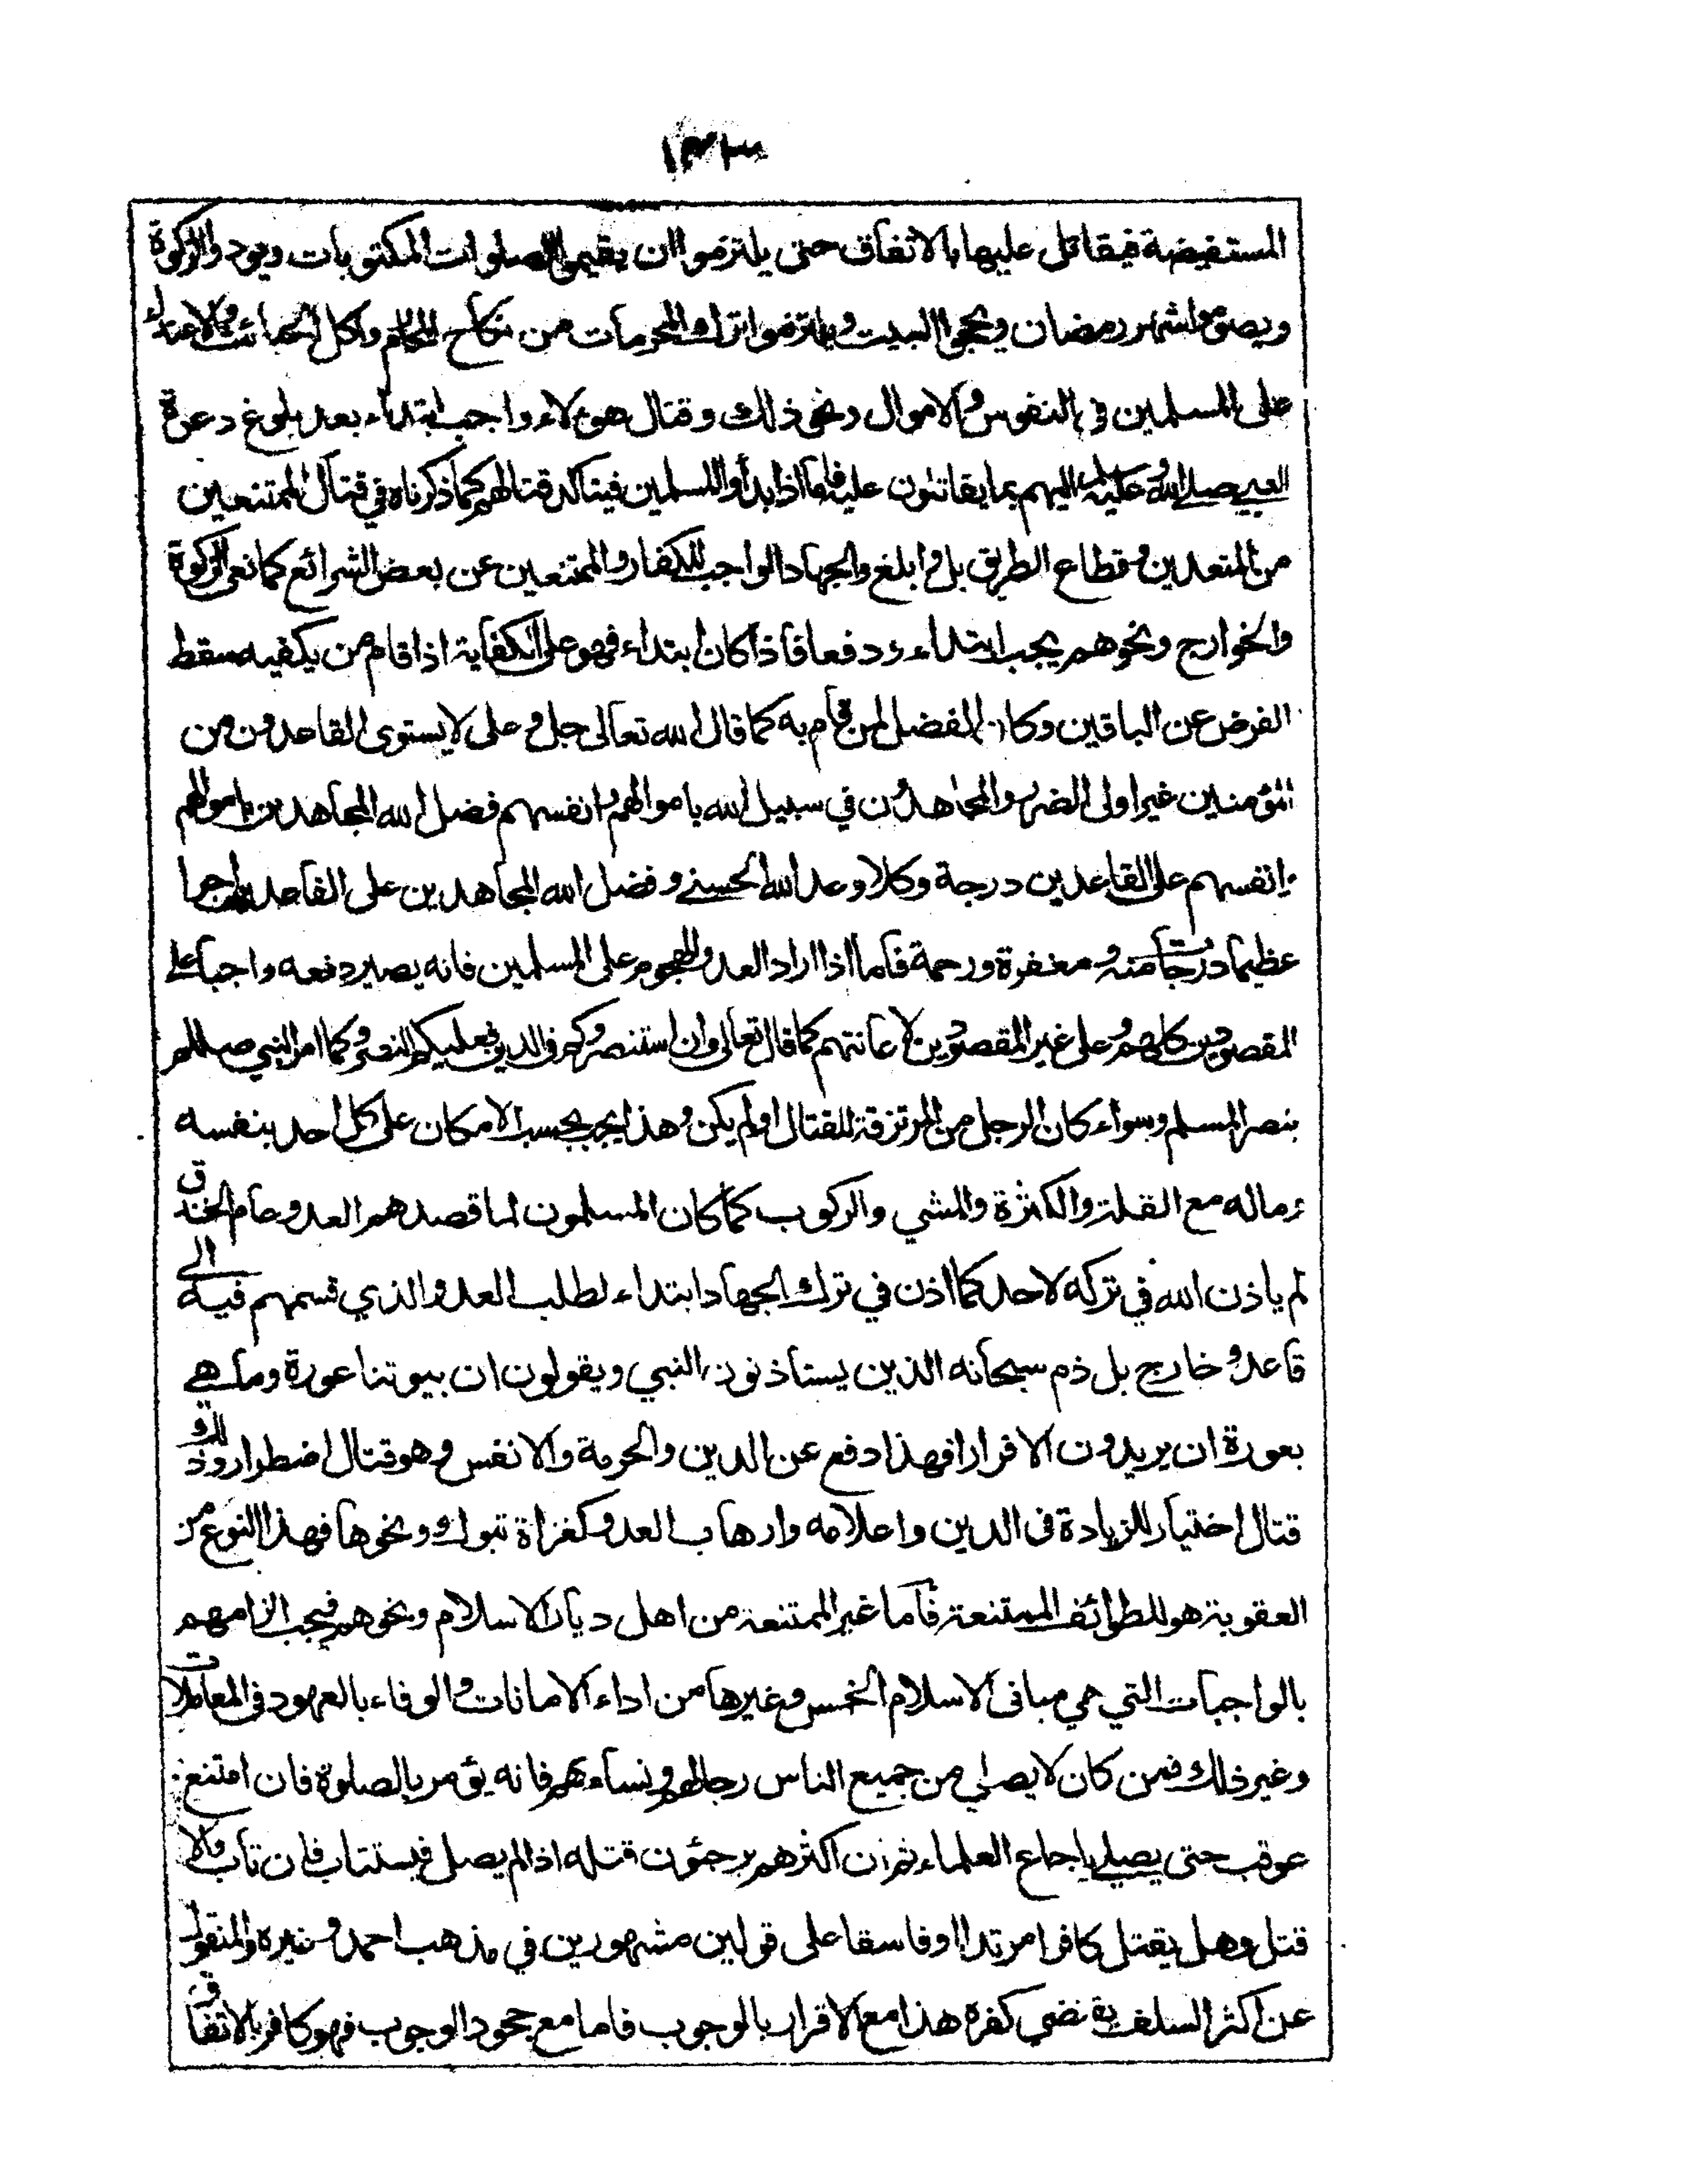 ١٣٣
المستفيضة فيقاتل عليها بالاتفاق حتى يلتزموا ان يقيموا الصلوات المكتوبات ويودوا الزكوة
ويصوموا شهر رمضان ويحجوا البيت ويلتزموا ترك المحرمات من نكاح المحارم واكل الخبائث والاعتداء
على المسلمين في النفوس والاموال ونحو ذلك وقتال هؤلاء واجب ابتداء بعد بلوغ دعوة
النبي صلى الله عليه اليهم بما يقاتلون عليه فاما اذا بدأوا المسلمين فيتاكد قتالهم كما ذكرناه في قتال الممتنعين
من المتعدين وقطاع الطريق بل وابلغ والجهاد الواجب للكفار والممتنعين عن بعض الشرائع كمانعي الزكوة
والخوارج ونحوهم يجب ابتداء ودفعا فاذا كان ابتداء فهو على الكفاية اذا قام من يكفيه سقط
الفرض عن الباقين وكان الفضل لمن قام به كما قال الله تعالى جل وعلى لا يستوى القاعدون من
المؤمنين غير اولى الضرر والمجاهدون في سبيل الله باموالهم وانفسهم فضل الله المجاهدين باموالهم
وانفسهم على القاعدين درجة وكلا وعد الله الحسنى وفضل الله المجاهدين على القاعدين اجرا
عظيما درجات منه ومغفرة ورحمة فاما اذا اراد العدو الهجوم على المسلمين فانه يصير دفعه واجبا على
المقصودين كلهم وعلى غير المقصودين لاعانتهم كما قال تعالى وان استنصروكم في الدين فعليكم النصر وكما امر النبي صللم
بنصر المسلم وسواء كان الرجل من المرتزقة للقتال او لم يكن وهذا يجب بحسب الامكان على كل احد بنفسه
وماله مع القلة والكثرة والمشي والركوب كما كان المسلمون لما قصدهم العدو عام الخندق
لم ياذن الله في تركه لاحد كما اذن في ترك الجهاد ابتداء لطلب العدو الذي قسمهم فيه الى
قاعد وخارج بل ذم سبحانه الذين يستاذنون النبي ويقولون ان بيوتنا عورة وما هي
بعورة ان يريدون الا فرارا فهذا دفع عن الدين والحرمة والانفس وهو قتال اضطرار وذلك
قتال اختيار للزيادة فى الدين واعلامه وارهاب العدو كغزاة تبوك ونحوها فهذا النوع من
العقوبة هو للطوائف الممتنعة فاما غير الممتنعة من اهل ديار الاسلام ونحوهم فيجب الزامهم
بالواجبات التي هي مبانى الاسلام الخمس وغيرها من اداء الامانات والوفاء بالعهود فى المعاملات
وغير ذلك فمن كان لا يصلي من جميع الناس رجالهم ونساءهم فانه يؤمر بالصلوة فان امتنع
عوقب حتى يصلي باجماع العلماء ثم ان اكثرهم يرجئون قتله اذا لم يصل فيستتاب فان تاب والا
قتل وهل يقتل كافرا مرتدا او فاسقا على قولين مشهورين في مذهب احمد وغيره والمنقول
عن اكثر السلف يقتضي كفره هذا مع الاقرار بالوجوب فاما مع جحود الوجوب فهو كافر بالاتفاق